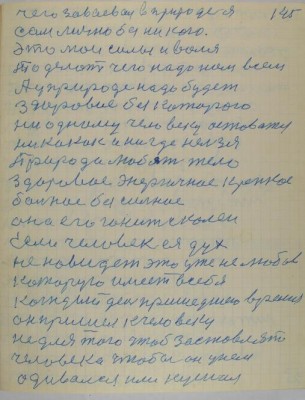 чего завоевал в природе я 145
сам лично без никого.
Это мои силы и воля
То делают чего надо нам всем
А у природе надо будет
здоровое без которого
ни одному человеку оставаться
никак и нигде нельзя
Природа любит тело
здоровое энергичное крепкое
больное бессилное
она его гонит
Если человек ея дух
ненавидет это уже не любов
которую имеет всебя
каждый ден пришедшего времня
он пришел к человеку
не для того чтоб заставлят
человека чтобы он у нем
одивался или кушал